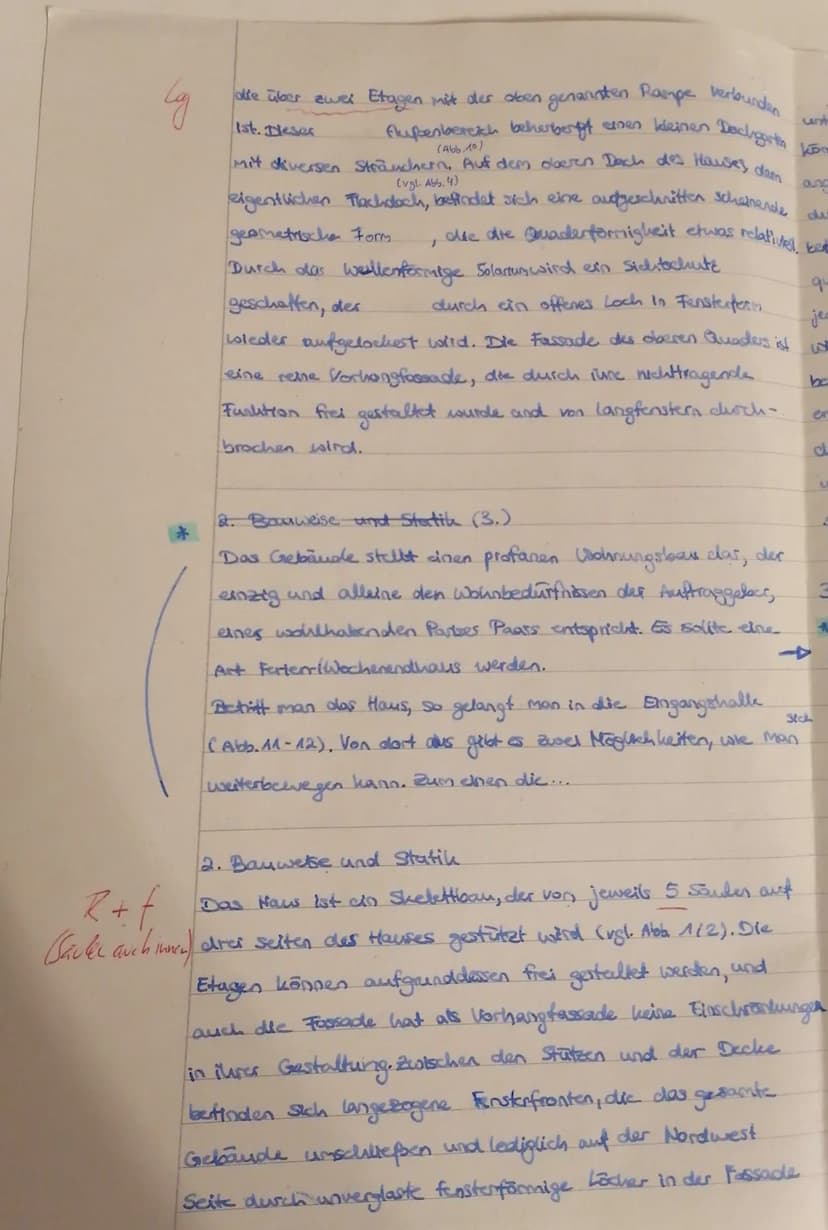 lg
die über zwei Etagen mit der oben genannten Rampe verbunden
ist. Dieser Außenbereich beherbergt einen kleinen Dachgarten
(Abb. 10)
mit diversen Sträuchern. Auf dem oberen Dach des Hauses, dem
(vgl. Abb. 4)
eigentlichen Flachdach, befindet sich eine aufgeschnitten scheinende
geometrische Form , die die Quaderförmigkeit etwas relativiert.
Durch das wellenförmige Solarium wird ein Sichtschutz
geschaffen, der durch ein offenes Loch in Fensterform
wieder aufgelockert wird. Die Fassade des oberen Quaders ist
eine reine Vorhangfassade, die durch ihre nichttragende
Funktion frei gestaltet wurde und von Langfenstern durch-
brochen wird.
2. Bauweise und Statik (3.)
*
Das Gebäude stellt einen profanen Wohnungsbau dar, der
einzig und alleine den Wohnbedürfnissen der Auftraggeber,
eines wohlhabenden Pariser Paars entspricht. Es sollte eine
Art Ferien-/Wochenendhaus werden.
Betritt man das Haus, so gelangt man in die Eingangshalle
sich
(Abb. 11-12). Von dort aus gibt es zwei Möglichkeiten, wie man
weiterbewegen kann. Zum einen die...
2. Bauweise und Statik
R + f
(Säulen auch innen)
Das Haus ist ein Skelettbau, der von jeweils 5 Säulen auf
drei Seiten des Hauses gestützt wird (vgl. Abb. 1/2). Die
Etagen können aufgrunddessen frei gestaltet werden, und
auch die Fassade hat als Vorhangfassade keine Einschränkungen
in ihrer Gestaltung. Zwischen den Stützen und der Decke
befinden sich langezogene Fensterfronten, die das gesamte
Gebäude umschließen und lediglich auf der Nordwest
Seite durch unverglaste fensterförmige Löcher in der Fassade